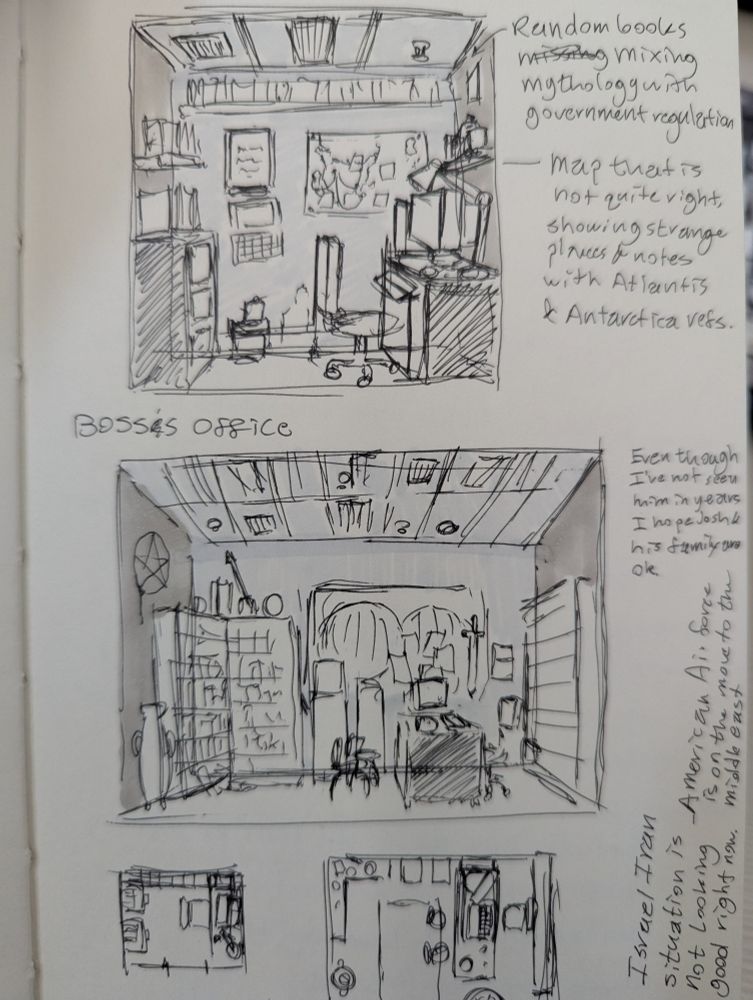 Random books
missing mixing
mythology with
government regulation
map that is
not quite right,
showing strange
places & notes
with Atlantis
& Antarctica refs.
Boss's office
Even though
I've not seen
him in years
I hope Josh &
his family are
ok
Israel Iran
situation is
not looking
good right now.
American Air force
is on the move to the
middle east